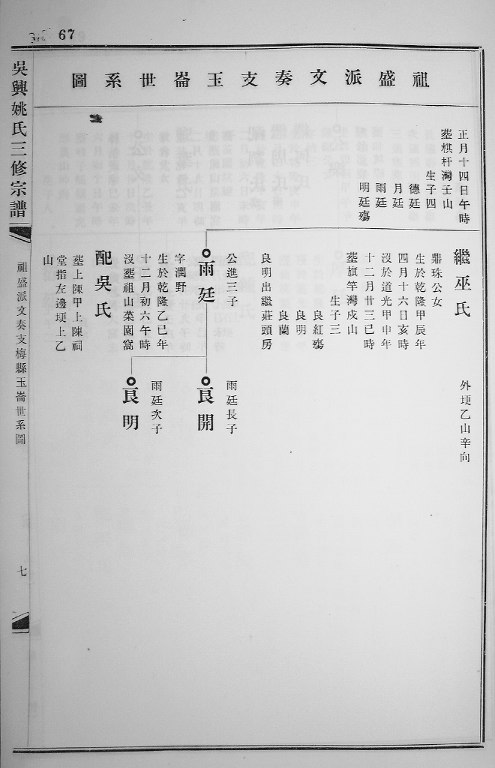 67
祖盛派文奏支玉崙世系圖
正月十四日午時
墓棋杆灣壬山
生子四
德廷
月廷
雨廷
明廷殤
繼巫氏
鼎珠公女
生於乾隆甲辰年
四月十六日亥時
沒於道光甲申年
十二月廿三巳時
墓旗竿灣戍山
生子三
良紅殤
良明
良蘭
良明出繼莊頭房
公進三子
雨廷
字潤野
生於乾隆乙巳年
十二月初六午時
沒墓祖山菜園窩
配吳氏
墓上陳甲上陳祠
堂指左邊埂上乙
山
外埂乙山辛向
雨廷長子
良開
雨廷次子
良明
吳興姚氏三修宗譜
祖盛派文奏支梅縣玉崙世系圖
七